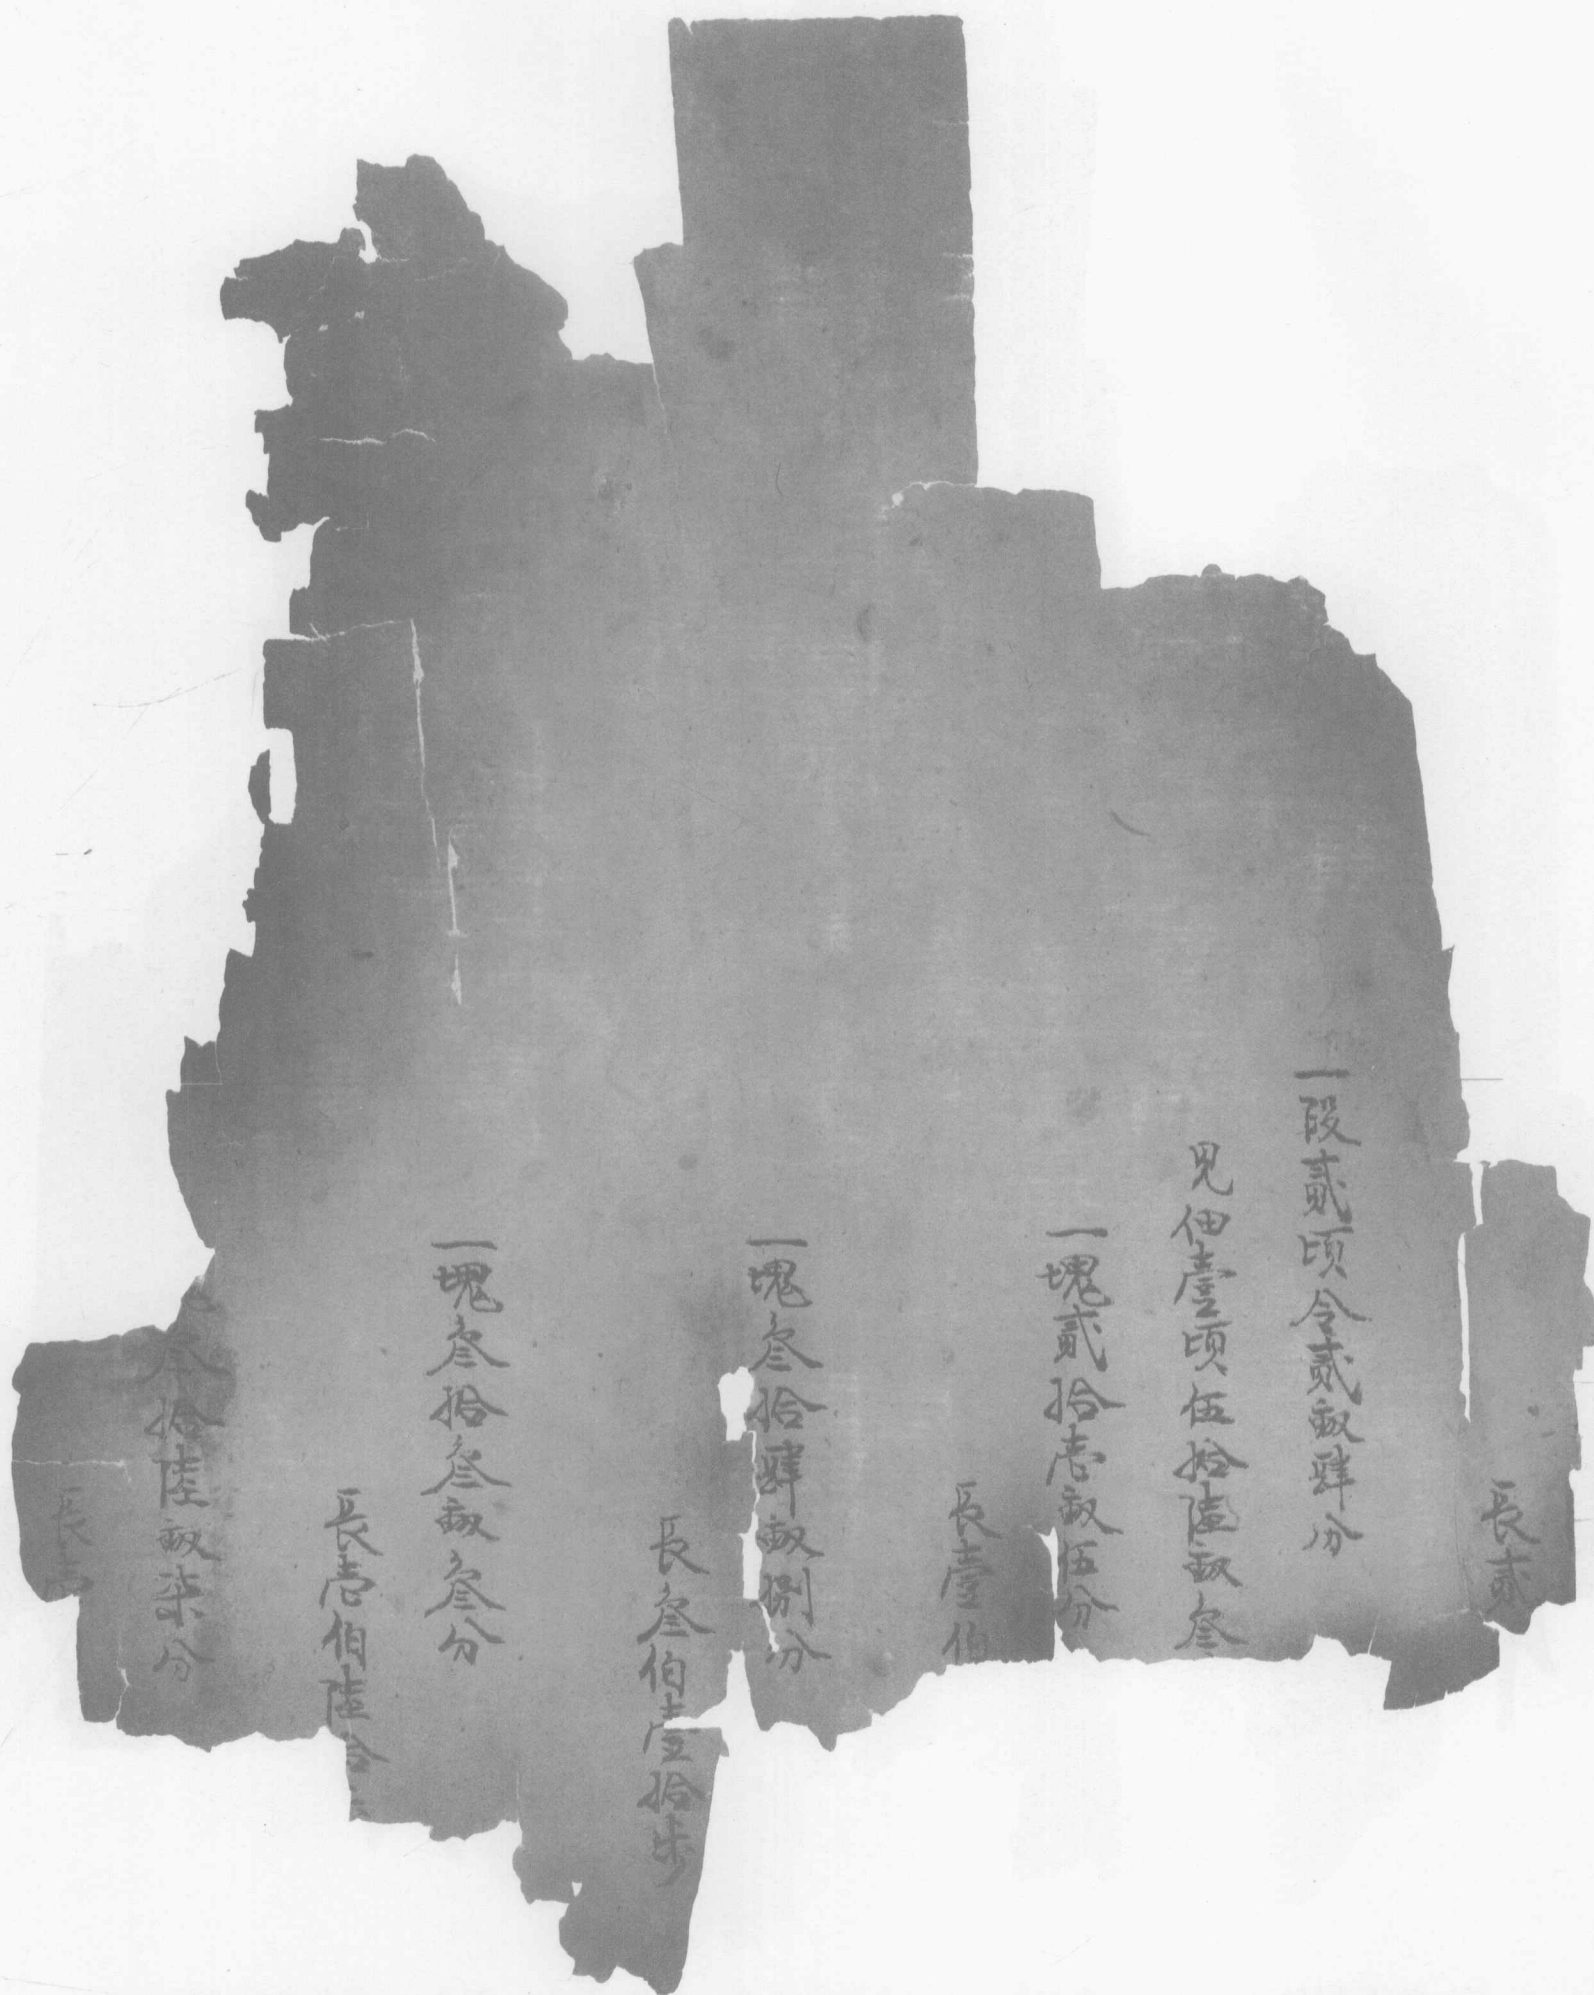 長貳
一段貳頃令貳畝肆分
見佃壹頃伍拾陸畝叁
一塊貳拾壱畝伍分
長壹伯
一塊叁拾肆畝捌分
長叁伯壹拾步
一塊叁拾叁畝叁分
長壱伯陸拾
叁拾陸畝柒分
長壹